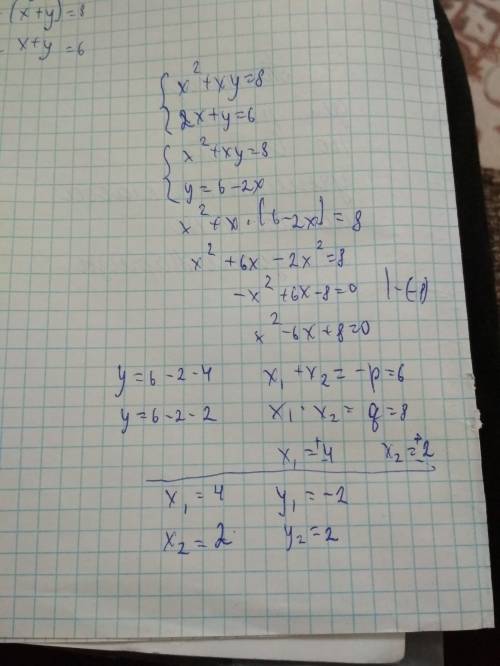 (x+y)=8
x+y=6
{ x²+xy=8
{ 2x+y=6
{ x²+xy=8
{ y=6-2x
x²+x·(6-2x)=8
x²+6x-2x²=8
-x²+6x-8=0 |·(-1)
x²-6x+8=0
y=6-2-4 x₁+x₂=-p=6
y=6-2-2 x₁·x₂=q=8
x₁=+4 x₂=+2
x₁=4 y₁=-2
x₂=2 y₂=2